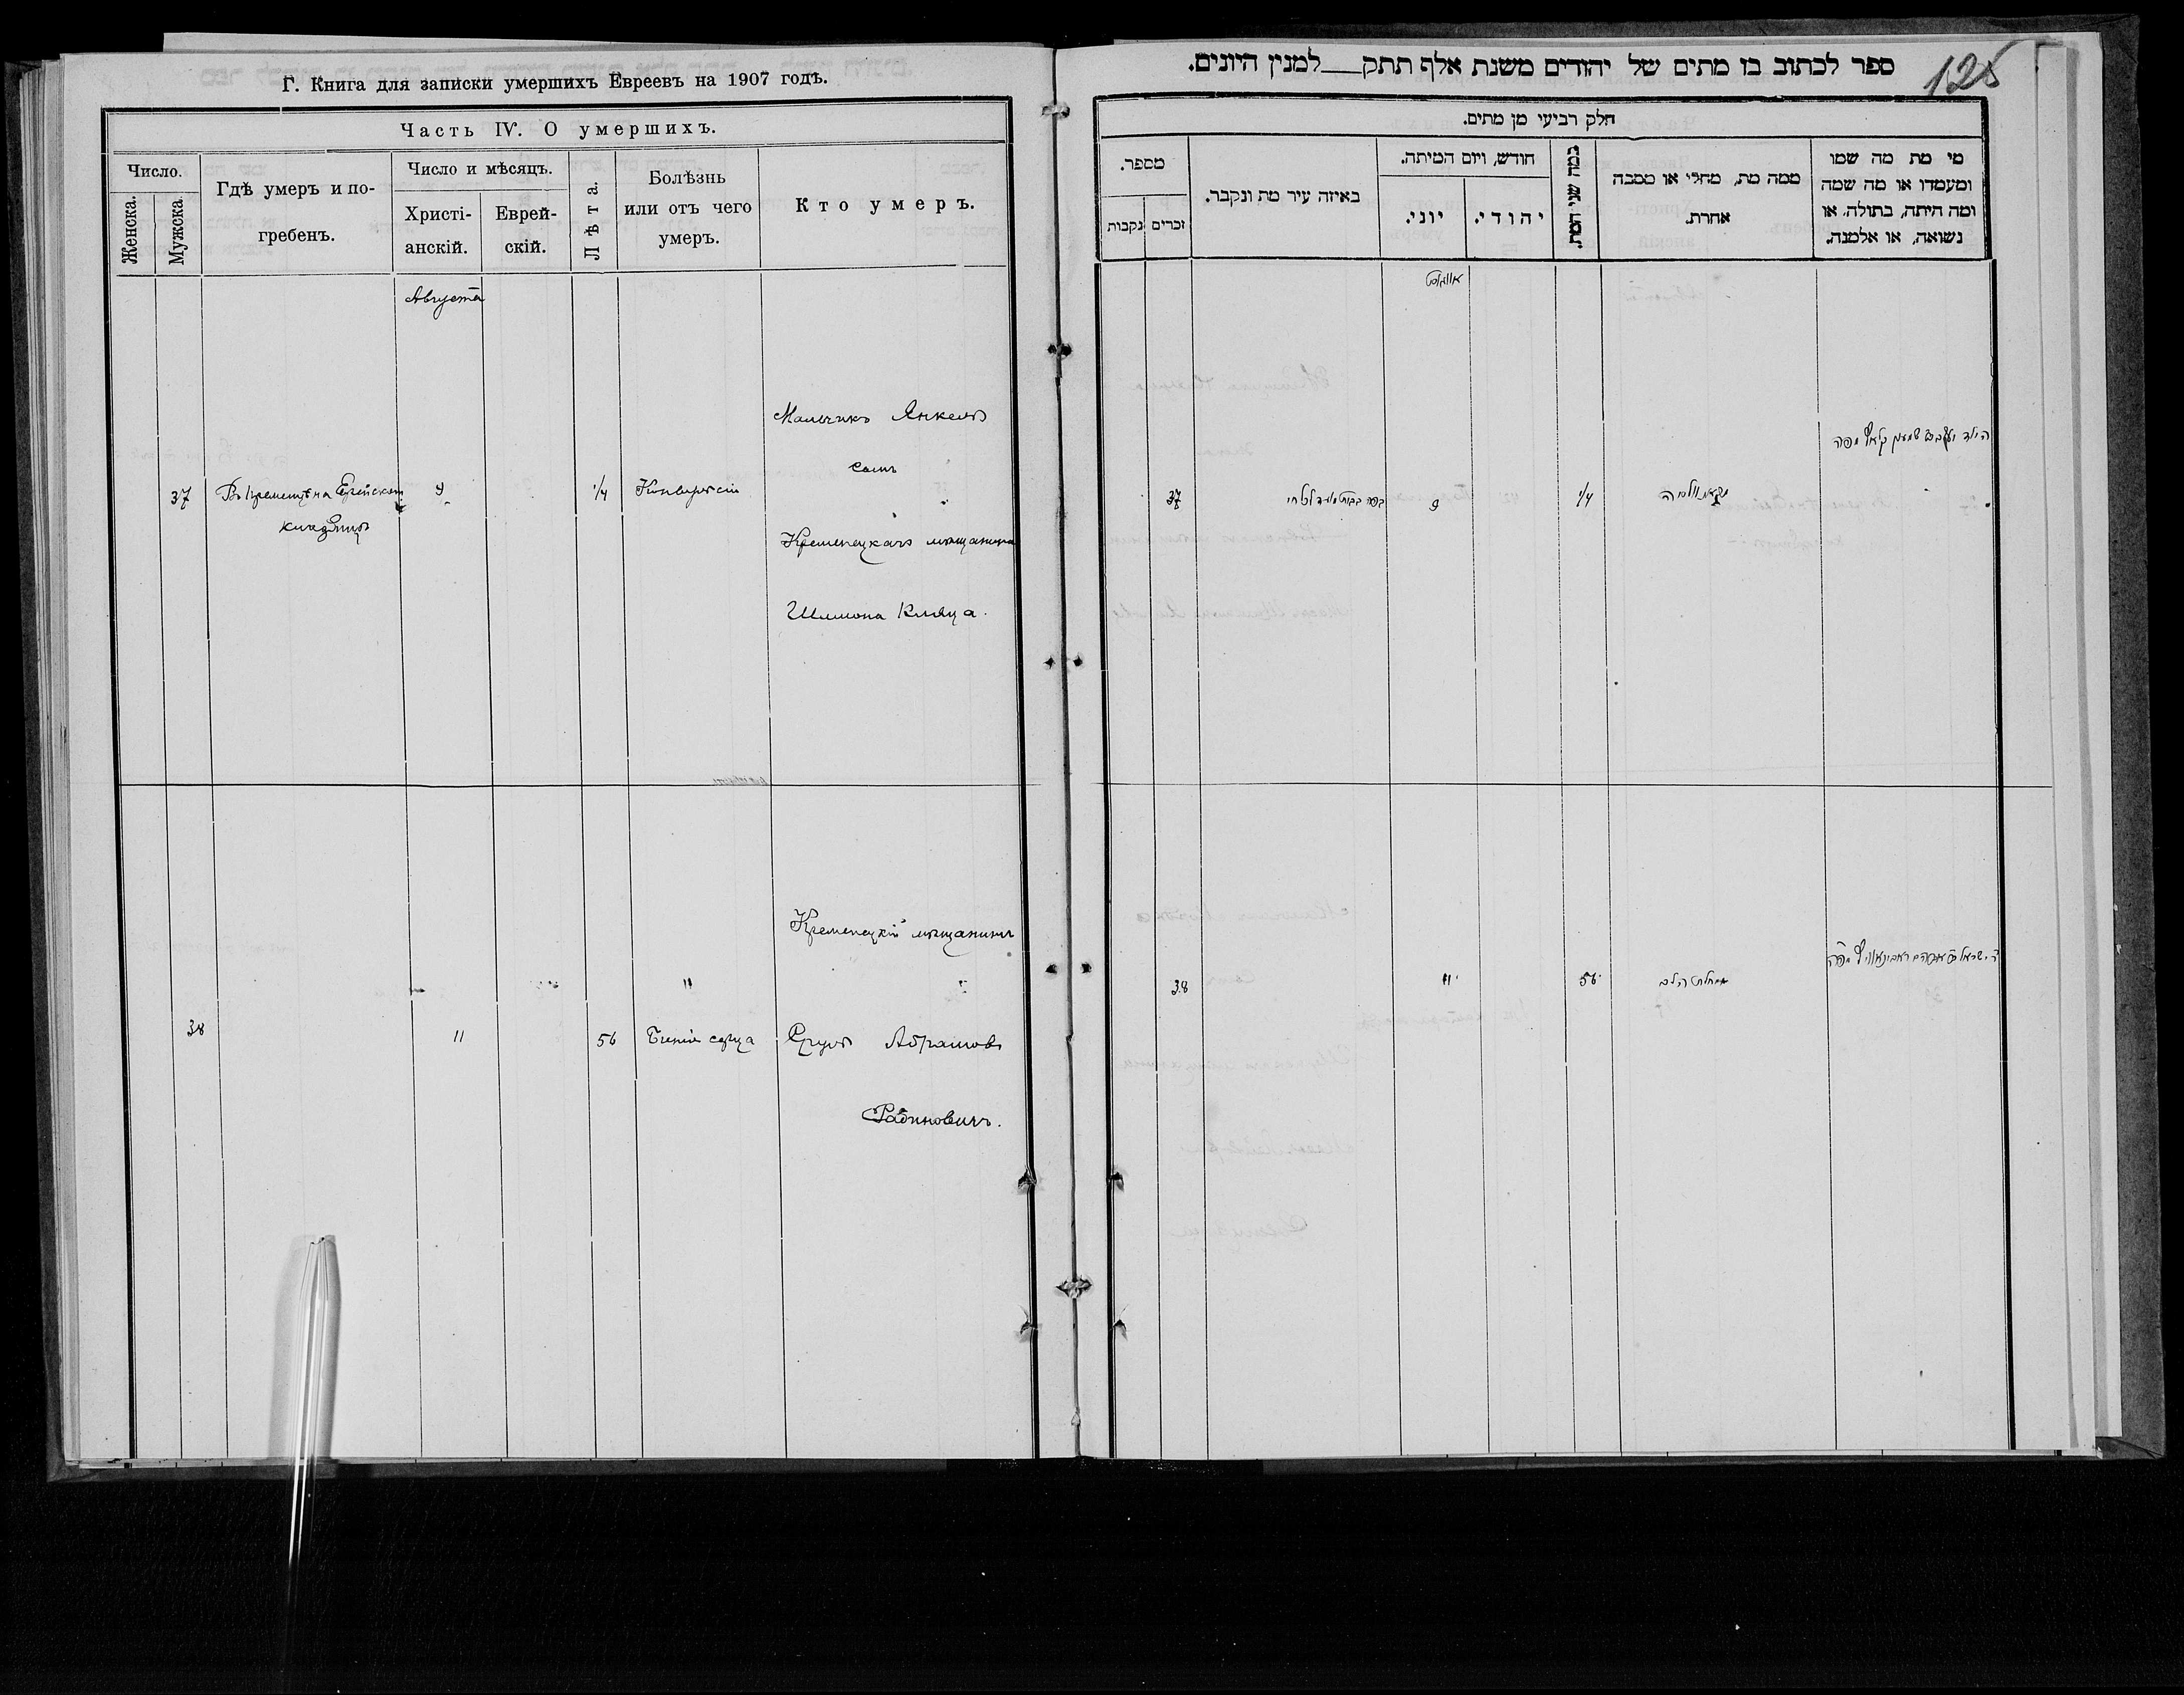 Г. Книга для записки умершихъ Евреевъ на 1907 годъ.
Часть IV. О умершихъ.
Число.
Женска.
Мужска.
Гдѣ умеръ и по-
гребенъ.
Число и мѣсяцъ.
Христі-
анскій.
Еврей-
скій.
Лѣта.
Болѣзнь
или отъ чего
умеръ.
Кто умеръ.
Августа
37
Въ Кременцѣ на Еврейскомъ
кладбищѣ
9
1/4
Мальчикъ Янкель
сынъ
Кременецкаго мѣщанина
Шимона Кляца.
38
11
56
Біеніе сердца
Кременецкій мѣщанинъ
Сруль Абрамовъ
Рабиновичъ.
ספר לכתוב בו מתים של יהודים משנת אלף תתק למנין היונים.
125
חלק רביעי מן מתים.
מספר.
נקבות
זכרים
באיזה עיר מת ונקבר.
חודש, ויום המיתה.
יוני.
יהודי.
כמה שני המת.
ממה מת, מחלי או מסבה
אחרת.
מי מת מה שמו
ומעמדו או מה שמה
ומה היתה, בתולה, או
נשואה, או אלמנה.
אווגוסט
37
9
1/4
הילד יעקב
38
11
56
מחלת הלב
ר' ישראל אברהם ראבינאוויץ מפה